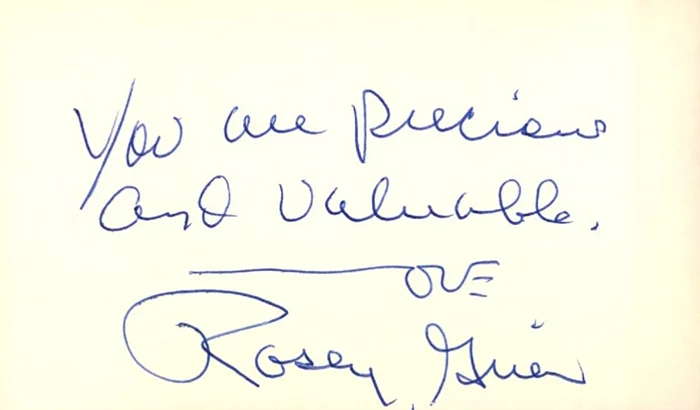 You are precious
and valuable.
Love
Rosey Grier